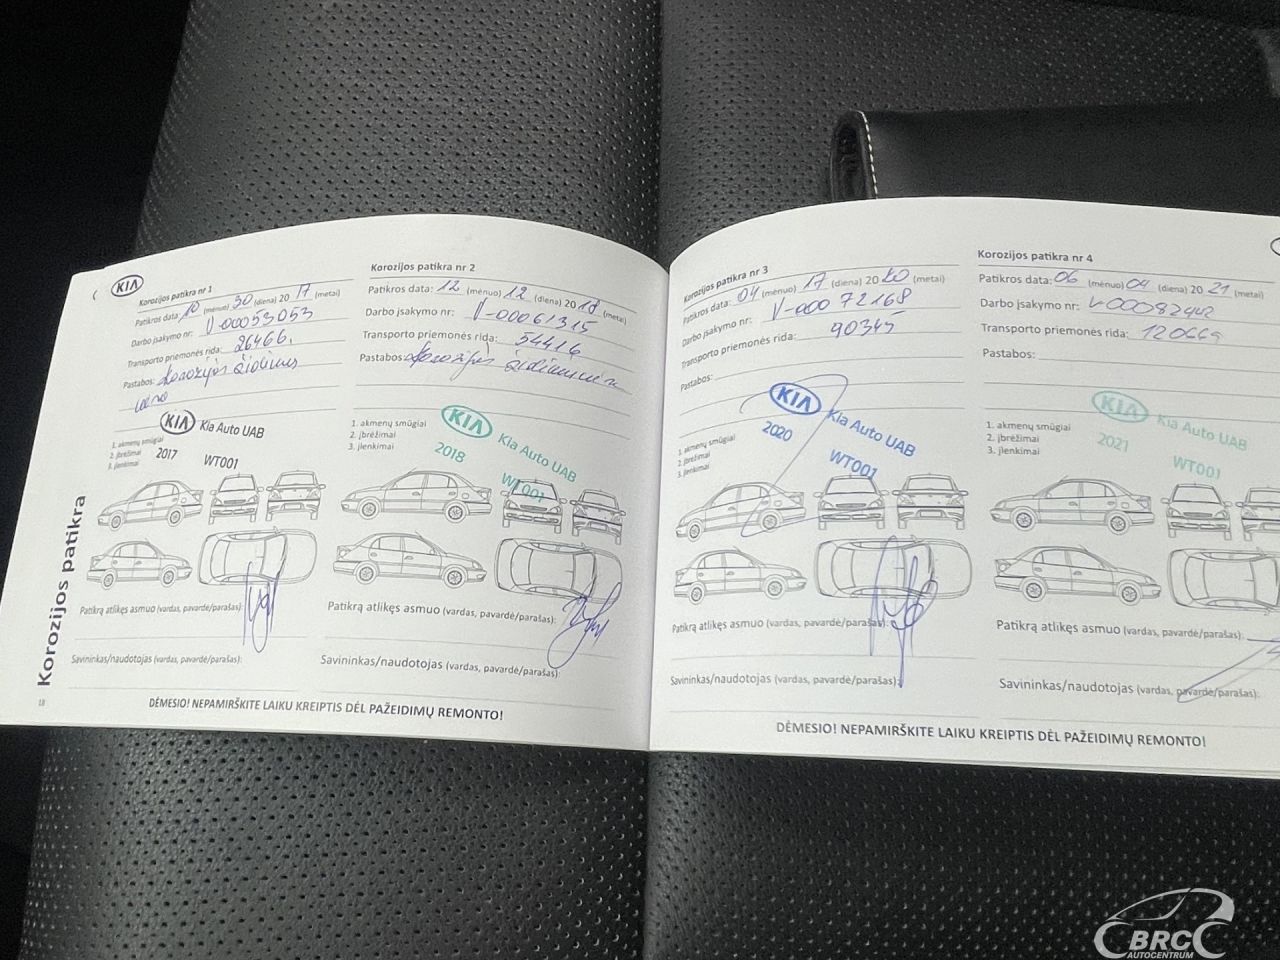 KIA
Korozijos patikra nr 1
Patikros data: 10 (mėnuo) 30 (diena) 20 17 (metai)
Darbo įsakymo nr: V-00053053
Transporto priemonės rida: 26466
Pastabos: Korozijos židinius
1. akmenų smūgiai
2. įbrėžimai
3. įlenkimai
KIA Kia Auto UAB
2017 WT001
Patikrą atlikęs asmuo (vardas, pavardė/parašas):
Savininkas/naudotojas (vardas, pavardė/parašas):
Korozijos patikra nr 2
Patikros data: 12 (mėnuo) 12 (diena) 20 18 (metai)
Darbo įsakymo nr: V-00061315
Transporto priemonės rida: 54416
Pastabos: Korozijos
1. akmenų smūgiai
2. įbrėžimai
3. įlenkimai
KIA Kia Auto UAB
2018 WT001
Patikrą atlikęs asmuo (vardas, pavardė/parašas):
Savininkas/naudotojas (vardas, pavardė/parašas):
Korozijos patikra
18
DĖMESIO! NEPAMIRŠKITE LAIKU KREIPTIS DĖL PAŽEIDIMŲ REMONTO!
Korozijos patikra nr 3
Patikros data: 04 (mėnuo) 17 (diena) 20 20 (metai)
Darbo įsakymo nr: V-00072168
Transporto priemonės rida: 90345
Pastabos:
1. akmenų smūgiai
2. įbrėžimai
3. įlenkimai
KIA Kia Auto UAB
2020 WT001
Patikrą atlikęs asmuo (vardas, pavardė/parašas):
Savininkas/naudotojas (vardas, pavardė/parašas):
Korozijos patikra nr 4
Patikros data: 06 (mėnuo) 04 (diena) 20 21 (metai)
Darbo įsakymo nr: V-00082442
Transporto priemonės rida: 120669
Pastabos:
1. akmenų smūgiai
2. įbrėžimai
3. įlenkimai
KIA Kia Auto UAB
2021 WT001
Patikrą atlikęs asmuo (vardas, pavardė/parašas):
Savininkas/naudotojas (vardas, pavardė/parašas):
DĖMESIO! NEPAMIRŠKITE LAIKU KREIPTIS DĖL PAŽEIDIMŲ REMONTO!
BRC
AUTOCENTRUM